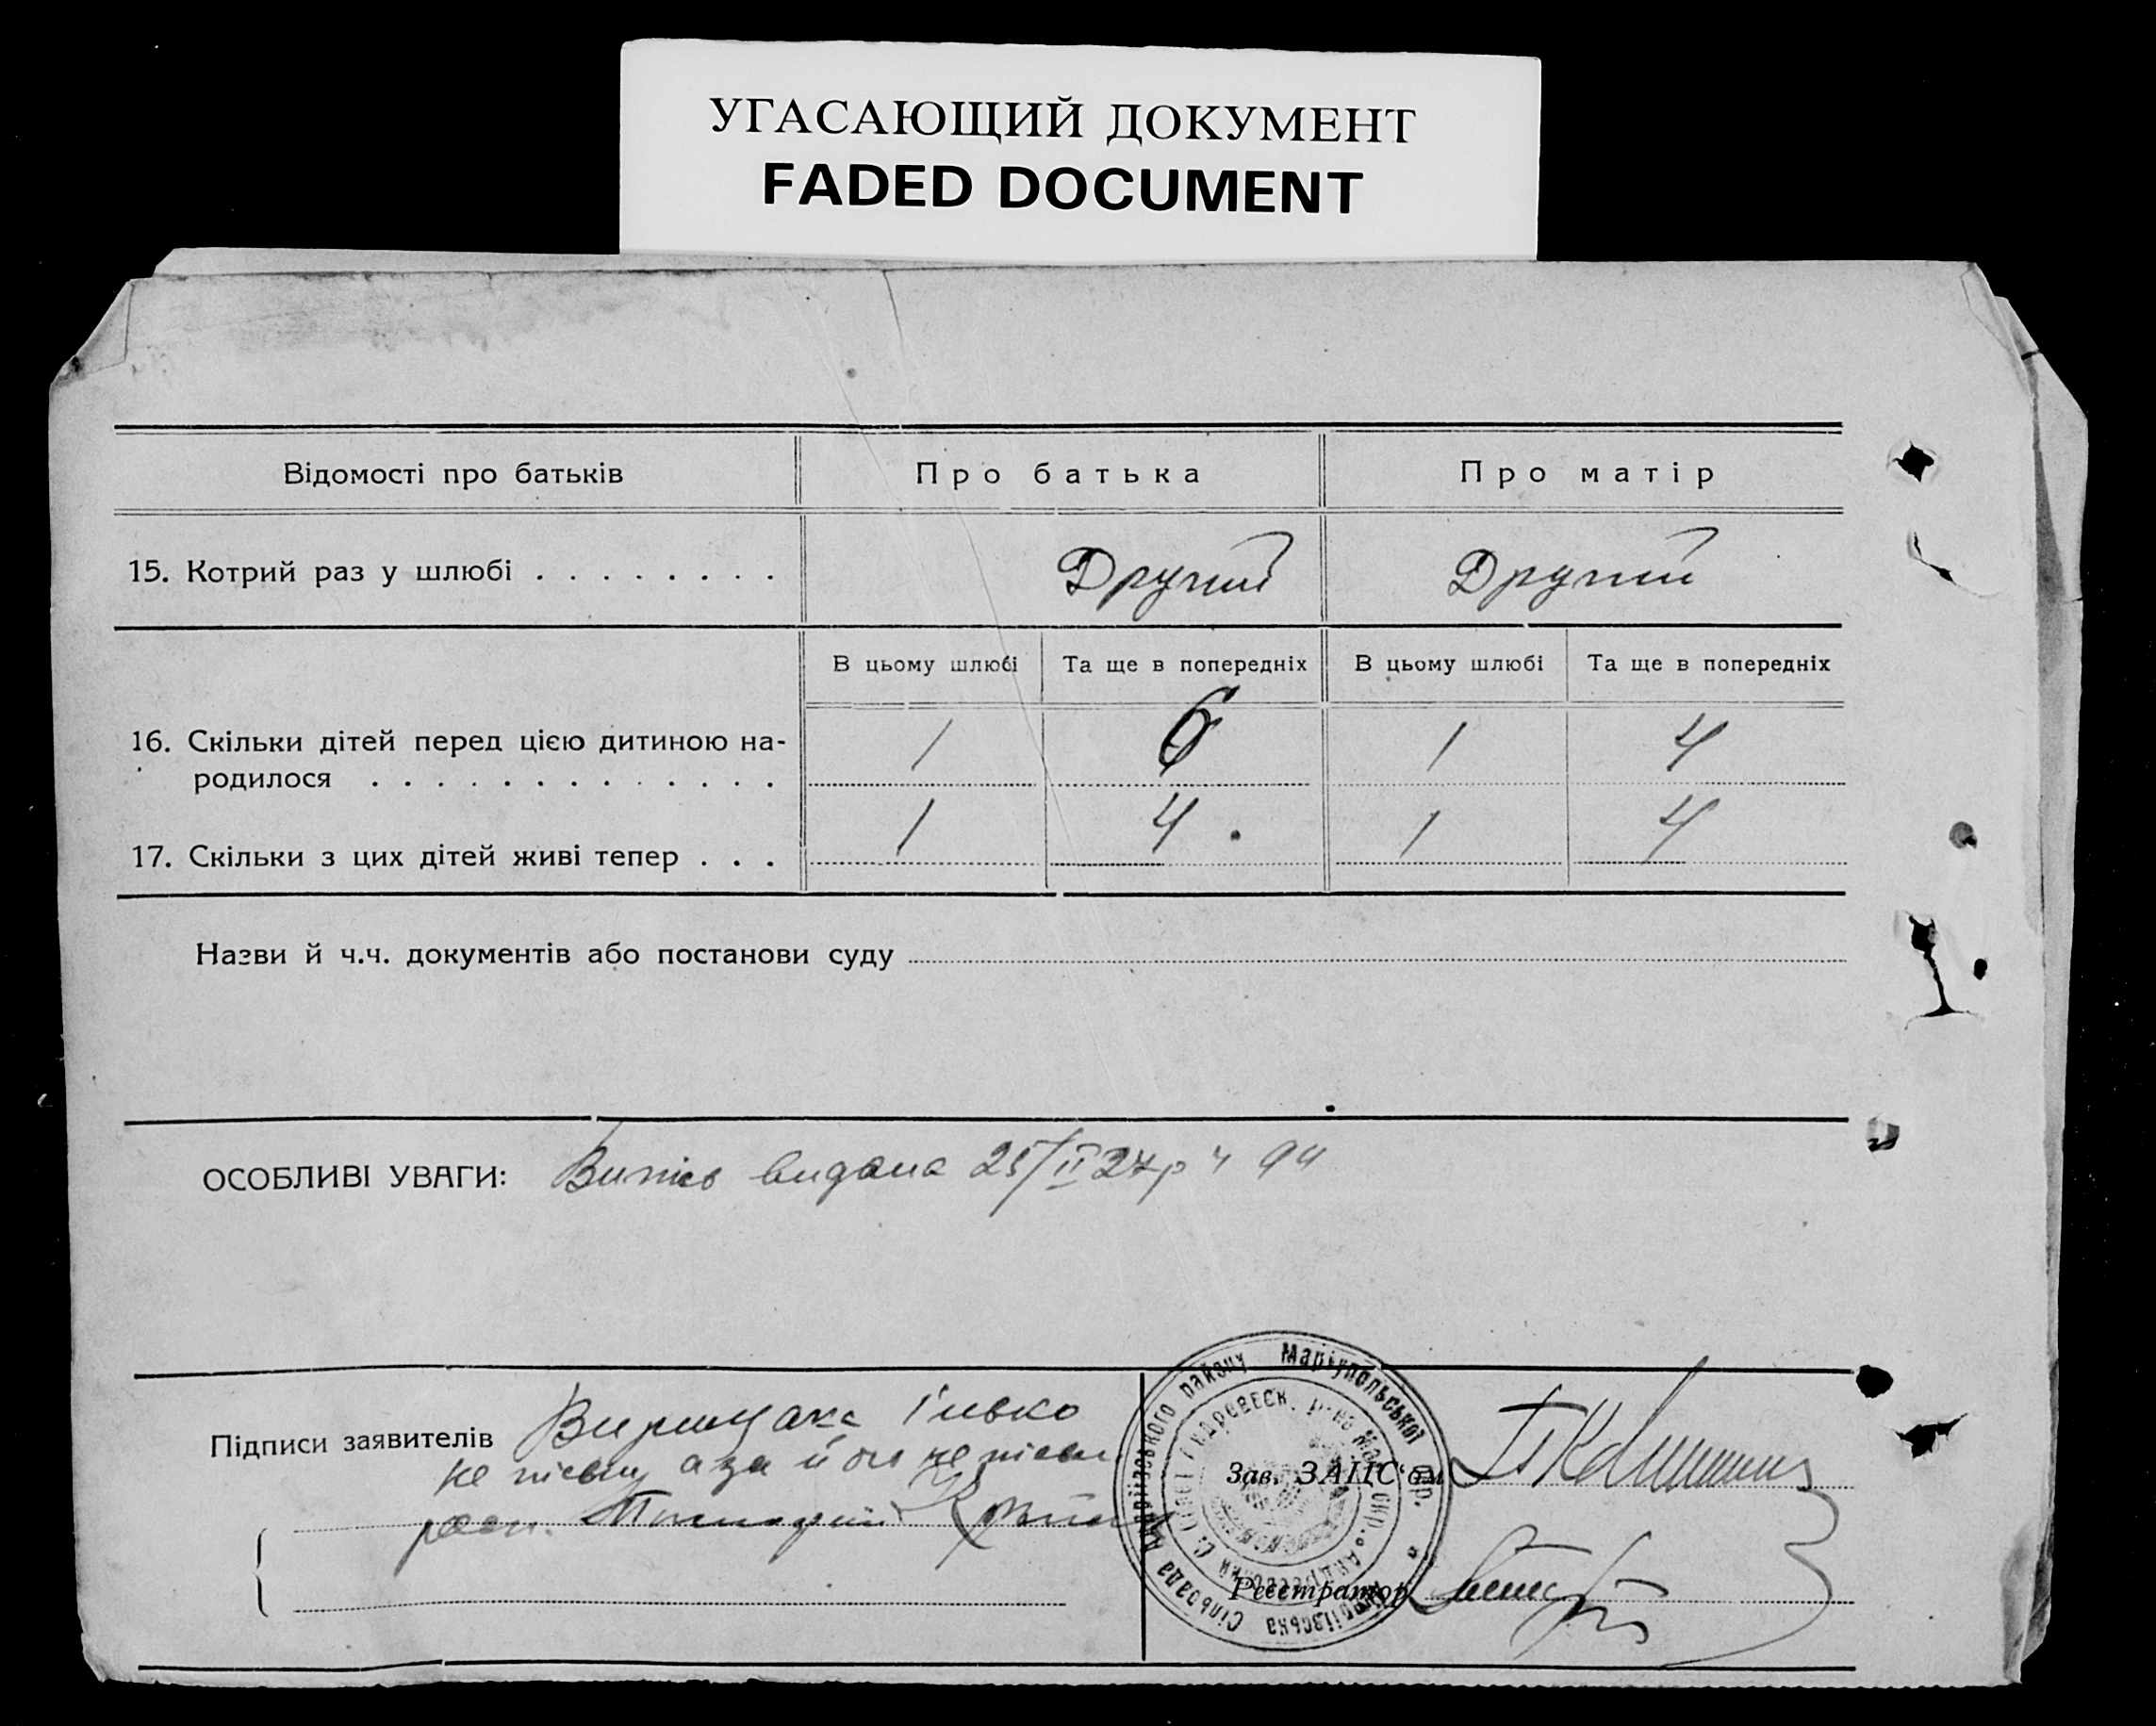 УГАСАЮЩИЙ ДОКУМЕНТ
FADED DOCUMENT
Відомості про батьків
Про батька
Про матір
15. Котрий раз у шлюбі . . . . . . . .
Другий
Другий
В цьому шлюбі
Та ще в попередніх
В цьому шлюбі
Та ще в попередніх
16. Скільки дітей перед цією дитиною на-
родилося . . . . . . . . . . . . .
1
6
1
4
17. Скільки з цих дітей живі тепер . . .
1
4
1
4
Назви й ч.ч. документів або постанови суду
ОСОБЛИВІ УВАГИ: Витяг видана 25/II 27р ч 94
Підписи заявителів
Зав. ЗАЦС'ом
Реєстратор
району Маріупольської Окр.
Сільрада